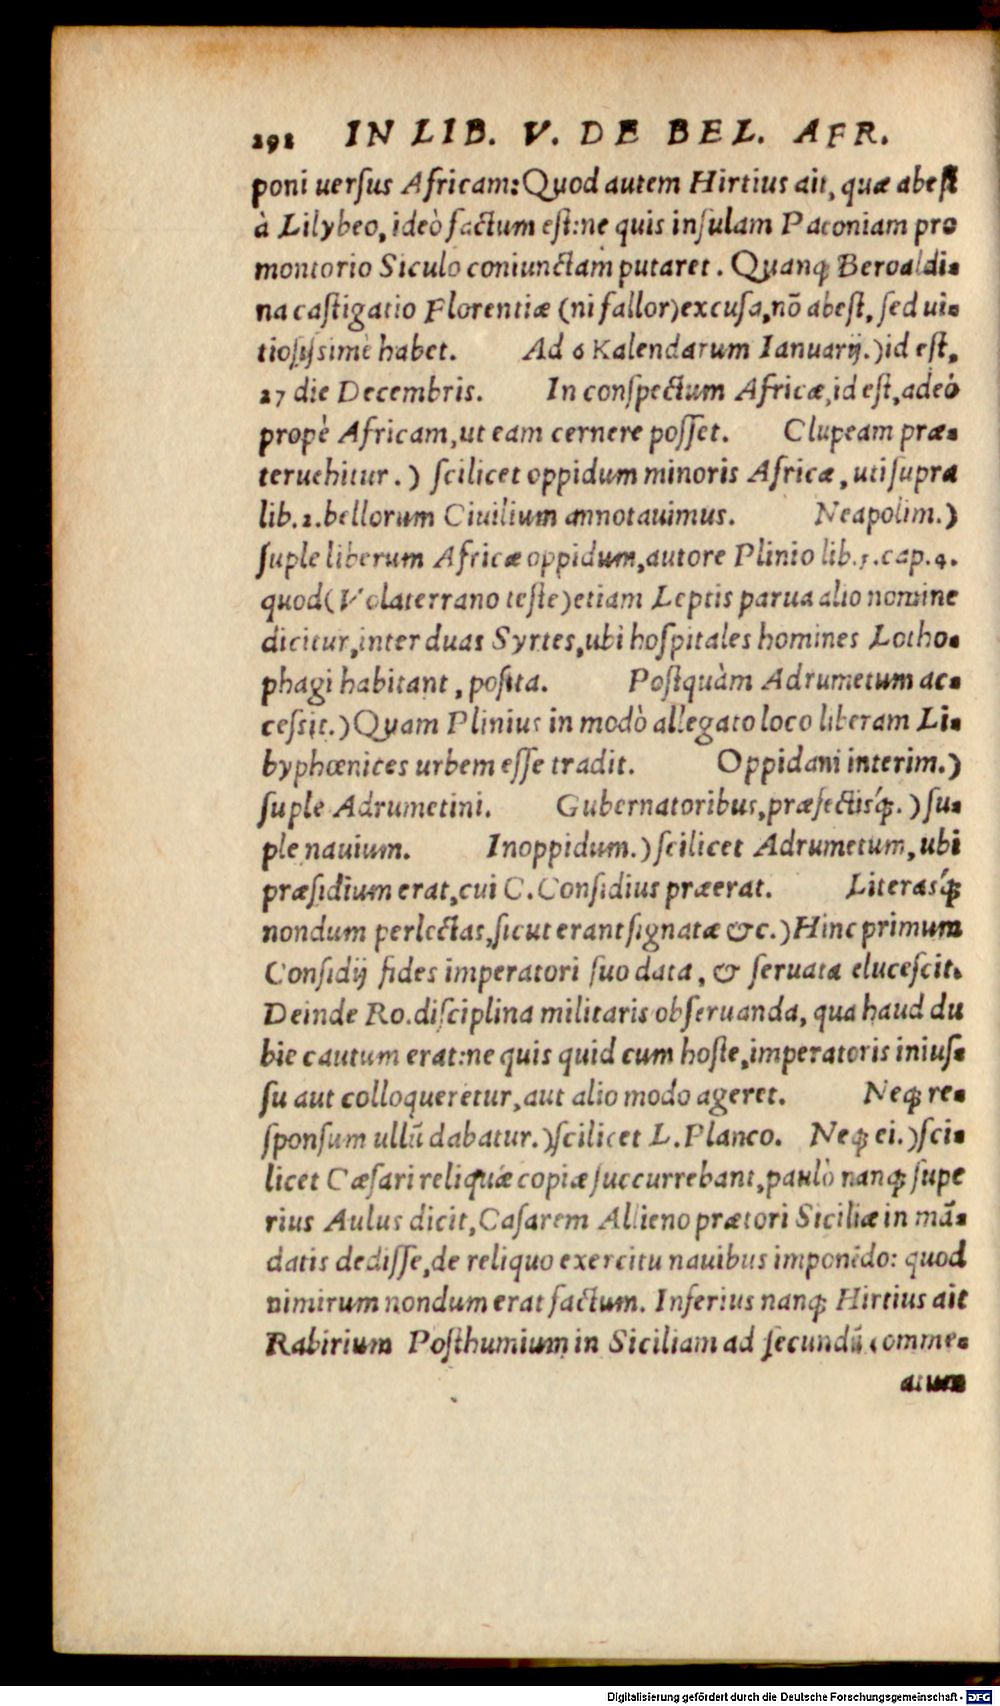 292 IN LIB. V. DE BEL. AFR.
poni uerſus Africam: Quod autem Hirtius ait, quæ abeſt
à Lilybeo, ideò factum eſt: ne quis inſulam Paconiam pro
montorio Siculo coniunctam putaret. Quanq́ Beroaldi-
na caſtigatio Florentiæ (ni fallor) excuſa, nō abeſt, ſed ui-
tioſiſsimè habet. Ad 6 Kalendarum Ianuarij.) id eſt,
27 die Decembris. In conſpectum Africæ, id eſt, adeò
propè Africam, ut eam cernere poſſet. Clupeam præ-
teruehitur.) ſcilicet oppidum minoris Africæ, uti ſupra
lib. 2. bellorum Ciuilium annotauimus. Neapolim.)
ſuple liberum Africæ oppidum, autore Plinio lib. 5. cap. 4.
quod (Volaterrano teſte) etiam Leptis parua alio nomine
dicitur, inter duas Syrtes, ubi hoſpitales homines Lotho-
phagi habitant, poſita. Poſtquàm Adrumetum ac-
ceſsit.) Quam Plinius in modò allegato loco liberam Li-
byphœnices urbem eſſe tradit. Oppidani interim.)
ſuple Adrumetini. Gubernatoribus, præfectisq́;.) ſu-
ple nauium. In oppidum.) ſcilicet Adrumetum, ubi
præſidium erat, cui C. Conſidius præerat. Literasq́;
nondum perlectas, ſicut erant ſignatæ &c.) Hinc primum
Conſidij fides imperatori ſuo data, & ſeruata eluceſcit.
Deinde Ro. diſciplina militaris obſeruanda, qua haud du
bie cautum erat: ne quis quid cum hoſte, imperatoris iniuſ-
ſu aut colloqueretur, aut alio modo ageret. Neq; re-
ſponſum ullū dabatur.) ſcilicet L. Planco. Neq; ei.) ſci-
licet Cæſari reliquæ copiæ ſuccurrebant, paulò nanq; ſupe
rius Aulus dicit, Caſarem Allieno prætori Siciliæ in mā-
datis dediſſe, de reliquo exercitu nauibus imponēdo: quod
nimirum nondum erat factum. Inferius nanq; Hirtius ait
Rabirium Poſthumium in Siciliam ad ſecundū comme-
atum
Digitalisierung gefördert durch die Deutsche Forschungsgemeinschaft - DFG